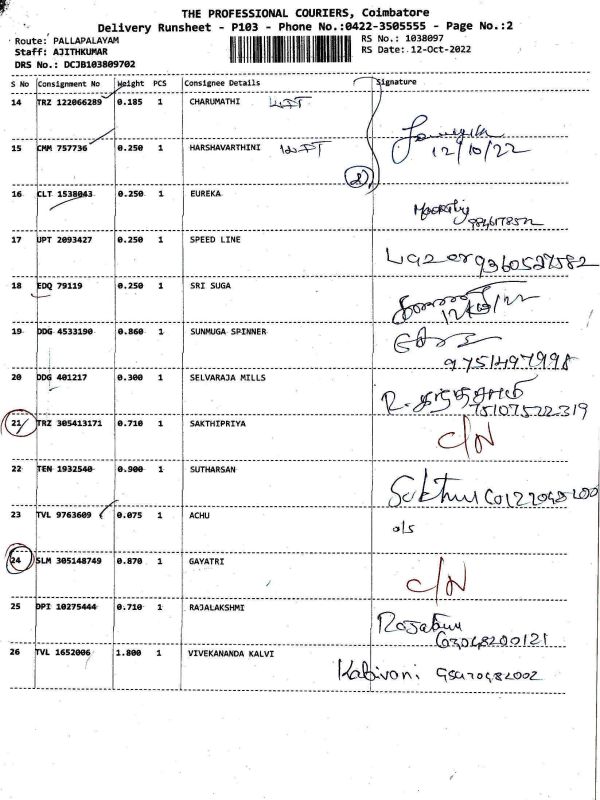 THE PROFESSIONAL COURIERS, Coimbatore
Delivery Runsheet - P103 - Phone No.:0422-3505555 - Page No.:2
Route: PALLAPALAYAM RS No.: 1038097
Staff: AJITHKUMAR RS Date: 12-Oct-2022
DRS No.: DCJB103809702
S No Consignment No Weight PCS Consignee Details Signature
14 TRZ 122066289 0.185 1 CHARUMATHI
15 CMM 757736 0.250 1 HARSHAVARTHINI
12/10/22
16 CLT 1538043 0.250 1 EUREKA
17 UPT 2093427 0.250 1 SPEED LINE
Lazer 9360527582
18 EDQ 79119 0.250 1 SRI SUGA
19 DDG 4533190 0.860 1 SUNMUGA SPINNER
9751497998
20 DDG 401217 0.300 1 SELVARAJA MILLS
21 TRZ 305413171 0.710 1 SAKTHIPRIYA C/N
22 TEN 1932540 0.900 1 SUTHARSAN
23 TVL 9763609 0.075 1 ACHU o/s
24 SLM 305148749 0.870 1 GAYATRI C/N
25 DPI 10275444 0.710 1 RAJALAKSHMI
26 TVL 1652006 1.800 1 VIVEKANANDA KALVI